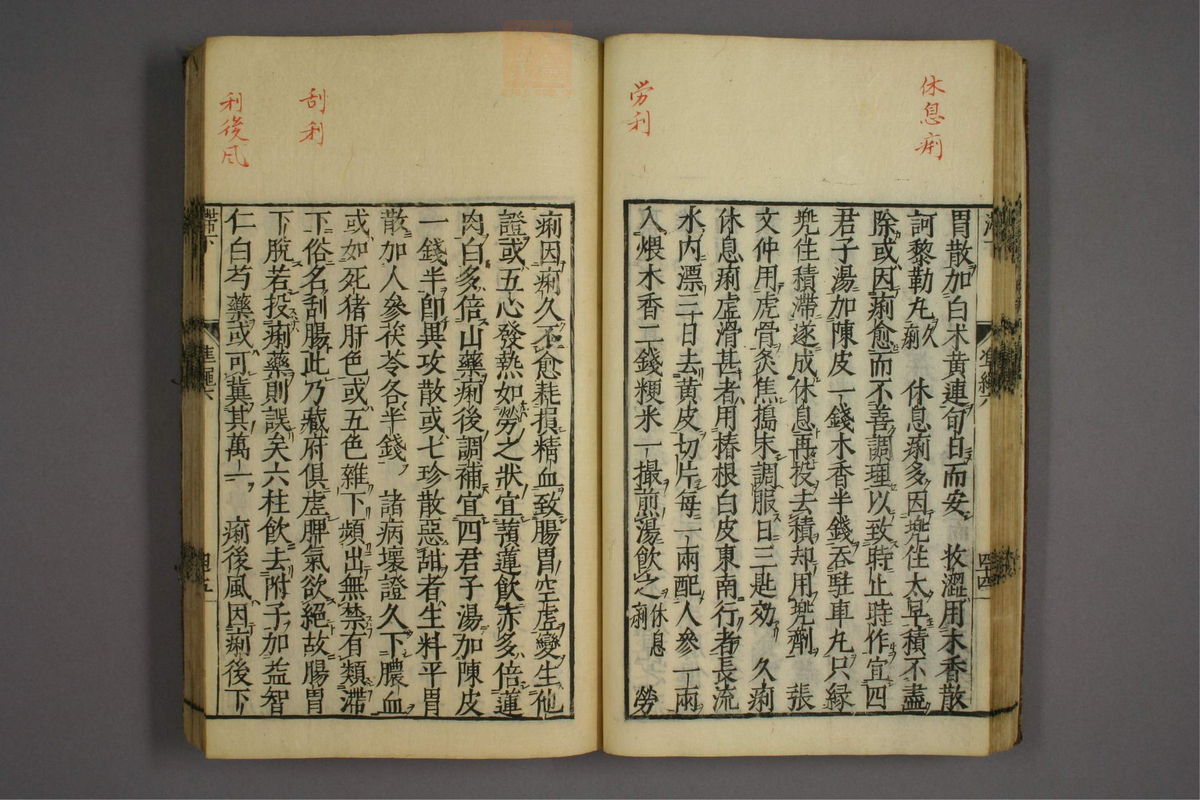 休息痢
労利
胃散加白朮黄連旬日而安 收澀用木香散
訶黎勒丸久痢 休息痢多因兜住太早積不盡
除或因痢愈而不善調理以致時止時作宜四
君子湯加陳皮一錢木香半錢吞駐車丸只縁
兜住積滯遂成休息再投去積却用兜劑 張
文仲用虎骨炙焦搗末調服日三匙効 久痢
休息痢虚滑甚者用椿根白皮東南行者長流
水内漂三日去黄皮切片每一兩配人參一兩
入煨木香二錢粳米一撮煎湯飲之休息痢 勞
四四
刮利
利後風
痢因痢久不愈耗損精血致腸胃空虚變生他
證或五心發熱如勞之狀宜蓴蓮飲赤多倍蓮
肉白多倍山藥痢後調補宜四君子湯加陳皮
一錢半即異攻散或七珍散惡甜者生料平胃
散加人參茯苓各半錢 諸病壞證久下膿血
或如死猪肝色或五色雜下頻出無禁有類滯
下俗名刮腸此乃藏府俱虚脾氣欲絕故腸胃
下脫若投痢藥則誤矣六柱飲去附子加益智
仁白芍藥或可冀其萬一 痢後風因痢後下
滯下
四五